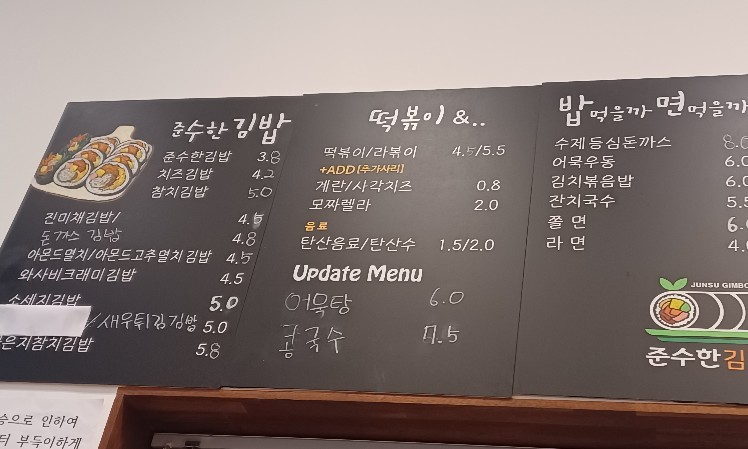 준수한 김밥
준수한김밥 3.8
치즈김밥 4.2
참치김밥 5.0
진미채김밥/ 4.5
돈까스 김밥 4.8
아몬드멸치/아몬드고추멸치김밥 4.5
와사비크래미김밥 4.5
소세지김밥 5.0
/새우튀김김밥 5.0
은지참치김밥 5.8
떡볶이 &..
떡볶이/라볶이 4.5/5.5
+ADD [추가사리]
계란/사각치즈 0.8
모짜렐라 2.0
음료
탄산음료/탄산수 1.5/2.0
Update Menu
어묵탕 6.0
콩국수 7.5
밥 먹을까 면 먹을까
수제등심돈까스 8.0
어묵우동 6.0
김치볶음밥 6.0
잔치국수 5.5
쫄면 6.
라면 4.
JUNSU GIMB
준수한김
승으로 인하여
터 부득이하게